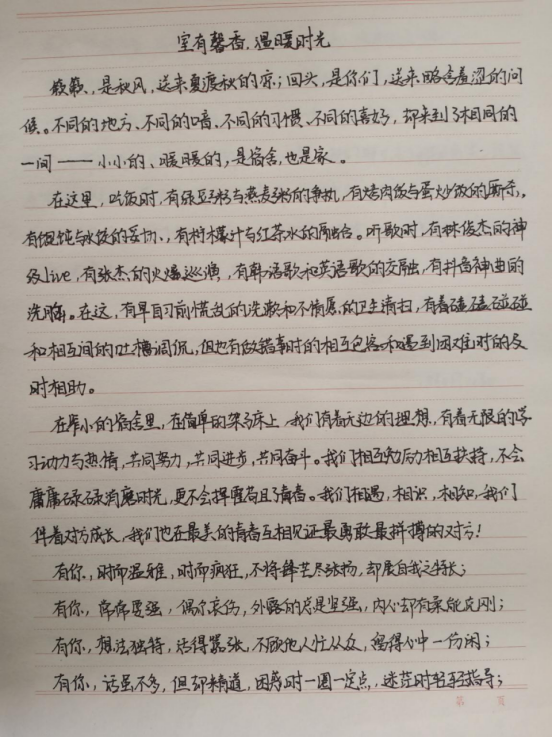 室有馨香,温暖时光
是秋风,送来夏渡秋的凉;回头,是你们,送来略含羞涩的问
候。不同的地方、不同的口音、不同的习惯、不同的喜好,却来到了相同的
一间——小小的、暖暖的,是宿舍,也是家。
在这里,吃饭时,有绿豆粥与燕麦粥的争执,有烤肉饭与蛋炒饭的厮杀,
有馄饨与水饺的妥协,有柠檬汁与红茶水的融合。听歌时,有林俊杰的神
级live,有张杰的火爆巡演,有韩语歌和英语歌的交融,有抖音神曲的
洗脑。在这,有早自习前慌乱的洗漱和不情愿的卫生清扫,有着磕磕碰碰
和相互间的吐槽调侃,但也有做错事时的相互包容和遇到困难时的及
时相助。
在窄小的宿舍里,在简单的架子床上,我们有着无边的理想,有着无限的学
习动力与热情,共同努力,共同进步,共同奋斗。我们相互勉励相互扶持,不会
庸庸碌碌消磨时光,更不会挥霍苟且了青春。我们相遇,相识,相知,我们
伴着对方成长,我们也在最美的青春互相见证最勇敢最拼搏的对方!
有你,时而温雅,时而疯狂,不将锋芒尽张扬,却展自我之特长;
有你,常常要强,偶尔哀伤,外露的总是坚强,内心却有柔能克刚;
有你,想法独特,活得嚣张,不做他人忙从众,留得心中一份闲;
有你,话虽不多,但却精道,困惑时一圈一定点,迷茫时轻轻指导;
第 页